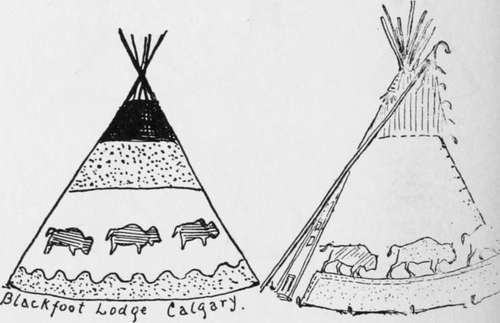 Blackfoot Lodge Calgary.